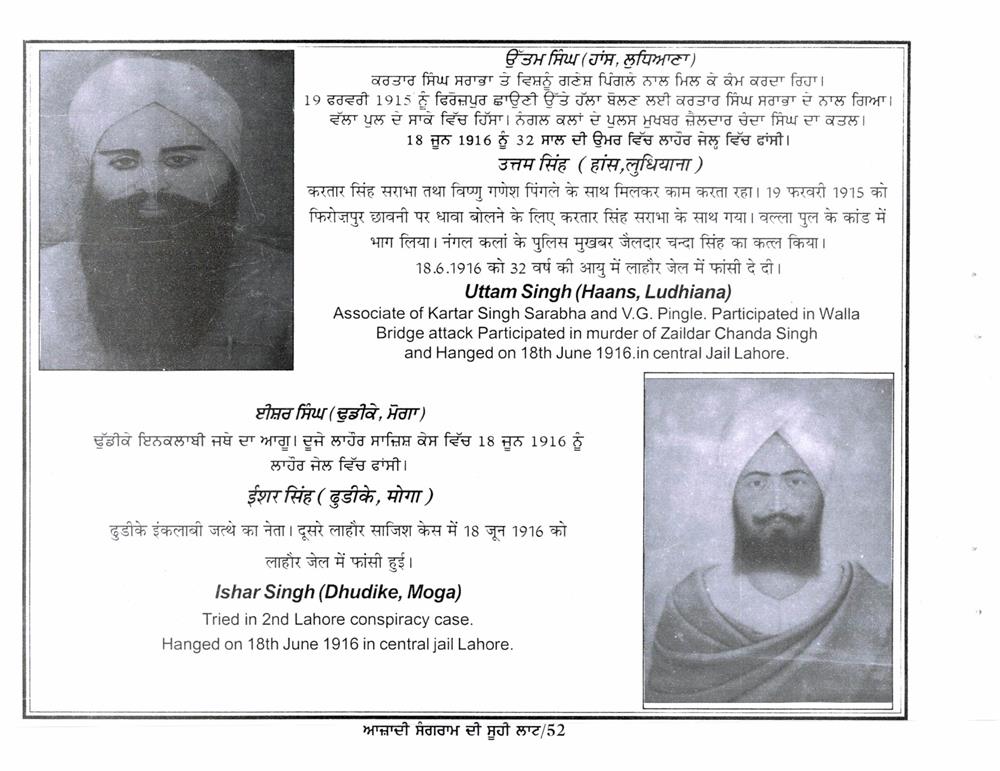 ਉੱਤਮ ਸਿੰਘ (ਹਾਂਸ, ਲੁਧਿਆਣਾ)
ਕਰਤਾਰ ਸਿੰਘ ਸਰਾਭਾ ਤੇ ਵਿਸ਼ਨੂੰ ਗਣੇਸ਼ ਪਿੰਗਲੇ ਨਾਲ ਮਿਲ ਕੇ ਕੰਮ ਕਰਦਾ ਰਿਹਾ।
19 ਫਰਵਰੀ 1915 ਨੂੰ ਫਿਰੋਜ਼ਪੁਰ ਛਾਉਣੀ ਉੱਤੇ ਹੱਲਾ ਬੋਲਣ ਲਈ ਕਰਤਾਰ ਸਿੰਘ ਸਰਾਭਾ ਦੇ ਨਾਲ ਗਿਆ।
ਵੱਲਾ ਪੁਲ ਦੇ ਸਾਕੇ ਵਿੱਚ ਹਿੱਸਾ। ਨੰਗਲ ਕਲਾਂ ਦੇ ਪੁਲਸ ਮੁਖਬਰ ਜ਼ੈਲਦਾਰ ਚੰਦਾ ਸਿੰਘ ਦਾ ਕਤਲ।
18 ਜੂਨ 1916 ਨੂੰ 32 ਸਾਲ ਦੀ ਉਮਰ ਵਿੱਚ ਲਾਹੌਰ ਜੇਲ੍ਹ ਵਿੱਚ ਫਾਂਸੀ।
उत्तम सिंह ( हांस,लुधियाना )
करतार सिंह सराभा तथा विष्णु गणेश पिंगले के साथ मिलकर काम करता रहा। 19 फरवरी 1915 को
फिरोज़पुर छावनी पर धावा बोलने के लिए करतार सिंह सराभा के साथ गया। वल्ला पुल के कांड में
भाग लिया। नंगल कलां के पुलिस मुखबर जैलदार चन्दा सिंह का कत्ल किया।
18.6.1916 को 32 वर्ष की आयु में लाहौर जेल में फांसी दे दी।
Uttam Singh (Haans, Ludhiana)
Associate of Kartar Singh Sarabha and V.G. Pingle. Participated in Walla
Bridge attack Participated in murder of Zaildar Chanda Singh
and Hanged on 18th June 1916.in central Jail Lahore.
ਈਸ਼ਰ ਸਿੰਘ (ਢੁਡੀਕੇ, ਮੋਗਾ)
ਢੁੱਡੀਕੇ ਇਨਕਲਾਬੀ ਜਥੇ ਦਾ ਆਗੂ। ਦੂਜੇ ਲਾਹੌਰ ਸਾਜ਼ਿਸ਼ ਕੇਸ ਵਿੱਚ 18 ਜੂਨ 1916 ਨੂੰ
ਲਾਹੌਰ ਜੇਲ ਵਿੱਚ ਫਾਂਸੀ।
ईशर सिंह ( ढुडीके, मोगा )
ढुडीके इंकलाबी जत्थे का नेता। दूसरे लाहौर साजिश केस में 18 जून 1916 को
लाहौर जेल में फांसी हुई।
Ishar Singh (Dhudike, Moga)
Tried in 2nd Lahore conspiracy case.
Hanged on 18th June 1916 in central jail Lahore.
ਆਜ਼ਾਦੀ ਸੰਗਰਾਮ ਦੀ ਸੂਹੀ ਲਾਟ/52